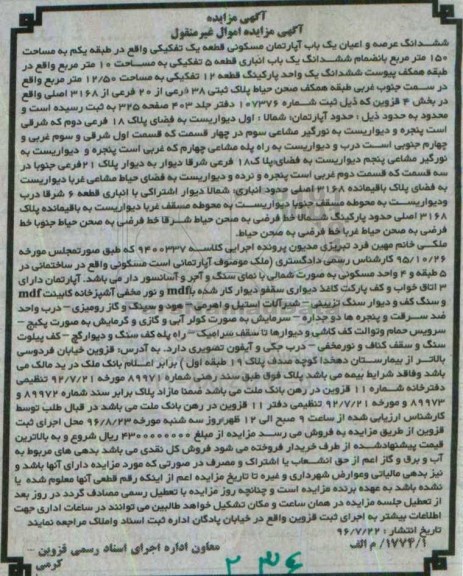 آگهی مزایده
آگهی مزایده اموال غیرمنقول
ششدانگ عرصه و اعیان یک باب آپارتمان مسکونی قطعه یک تفکیکی واقع در طبقه یکم به مساحت
۱۵۰ متر مربع بانضمام ششدانگ یک باب انباری قطعه ۵ تفکیکی به مساحت ۱۰ متر مربع واقع در
طبقه همکف پیوست ششدانگ یک واحد پارکینگ قطعه ۱۲ تفکیکی به مساحت ۱۲/۵۰ متر مربع واقع
در سمت جنوب غربی طبقه همکف صحن حیاط پلاک ثبتی ۳۸ فرعی از ۲۰ فرعی از ۳۱۶۸ اصلی واقع
در بخش ۴ قزوین که ذیل ثبت شماره ۱۰۷۳۷۶ دفتر جلد ۴۰۳ صفحه ۳۲۵ به ثبت رسیده است و
محدود به حدود ذیل : حدود آپارتمان: شمالا : اول دیواریست به فضای پلاک ۱۸ فرعی دوم که شرقی
است پنجره و دیواریست به نورگیر مشاعی سوم در چهار قسمت که قسمت اول شرقی و سوم غربی و
چهارم جنوبی است درب و دیواریست به راه پله مشاعی چهارم که غربی است پنجره و دیواریست به
نورگیر مشاعی پنجم دیواریست به فضای پلاک ۱۸ فرعی شرقا دیوار به دیوار پلاک ۲۱ فرعی جنوبا در
سه قسمت که قسمت دوم غربی است پنجره و نرده و دیواریست به فضای حیاط مشاعی غربا دیواریست
به فضای پلاک باقیمانده ۳۱۶۸ اصلی حدود انباری: شمالا دیوار اشتراکی با انباری قطعه ۶ شرقا درب
ودیواریست به محوطه مسقف جنوبا دیواریست به محوطه مسقف غربا دیواریست به باقیمانده پلاک
۳۱۶۸ اصلی حدود پارکینگ شمالا خط فرضی به صحن حیاط شرقا خط فرضی به صحن حیاط جنوبا خط
فرضی به صحن حیاط غربا خط فرضی به صحن حیاط.
ملکی خانم مهین فرد تبریزی مدیون پرونده اجرایی کلاسه ۹۴۰۰۳۳۷ که طبق صورتمجلس مورخه
۹۵/۱۰/۲۶ کارشناس رسمی دادگستری (ملک موصوف آپارتمانی است مسکونی واقع در ساختمانی در
۵ طبقه و ۴ واحد مسکونی به صورت شمالی با نمای سنگ و آجر و آسانسور دار می باشد. آپارتمان دارای
۳ اتاق خواب و کف پارکت کاغذ دیواری سقفو دیوار کار شده باmdf و نور مخفی آشپزخانه کابینت mdf
و سنگ کف و دیوار سنگ تزیینی – شیرآلات استیل و اهرمی – هود و سینک و گاز رومیزی – درب واحد
ضد سرقت و پنجره ها دو جداره – سرمایش به صورت کولر آبی و گازی و گرمایش به صورت پکیج –
سرویس حمام وتوالت کف کاشی و دیوارها تا سقف سرامیک – راه پله کف سنگ و دیوارگچ – کف پیلوت
سنگ و سقف کناف و نورمخفی – درب جکی و آیفون تصویری دارد. به آدرس: قزوین خیابان فردوسی
بالاتر از بیمارستان دهخدا کوچه صدف پلاک ۱۹ طبقه اول ) برابر اعلام بانک ملک در ید مالک می
باشد وفاقد شرایط بیمه می باشد پلاک فوق طبق سند رهنی شماره ۸۹۹۷۱ مورخه ۹۲/۷/۲۱ تنظیمی
دفترخانه شماره ۱۱ قزوین در رهن بانک ملت می باشد ضمنا مازاد پلاک برابر سند شماره ۸۹۹۷۲ و
۸۹۹۷۳ و مورخه ۹۲/۷/۲۱ تنظیمی دفتر ۱۱ قزوین در رهن بانک ملت می باشد در قبال طلب توسط
کارشناس ارزیابی شده از ساعت ۹ صبح الی ۱۲ ظهرروز سه شنبه مورخه ۹۶/۸/۲۳ محل اجرای ثبت
قزوین از طریق مزایده به فروش می رسد مزایده از مبلغ ریال شروع و به بالاترین
قیمت پیشنهادشده از طرف خریدار فروخته می شود فروش کل نقدی می باشد بدهی های مربوط به
آب و برق و گاز اعم از حق انشعاب یا اشتراک و مصرف در صورتی که مورد مزایده دارای آنها باشد و
نیز بدهی مالیاتی وعوارض شهرداری و غیره تا تاریخ مزایده اعم از اینکه رقم قطعی آنها معلوم شده یا
نشده باشد به عهده برنده مزایده است و چنانچه روز مزایده با تعطیل رسمی مصادف گردد در روز بعد
از تعطیل جلسه مزایده در همان ساعت و مکان تشکیل خواهد طالبین می توانند در ساعات اداری جهت
اطلاعات بیشتر به اجرای ثبت قزوین واقع در خیابان پادگان اداره ثبت اسناد واملاک مراجعه نمایند
تاریخ انتشار : ۹۶/۷/۲۲
۱۷۷۴/۱/ م الف
معاون اداره اجرای اسناد رسمی قزوین – کرمی
۲۳۶